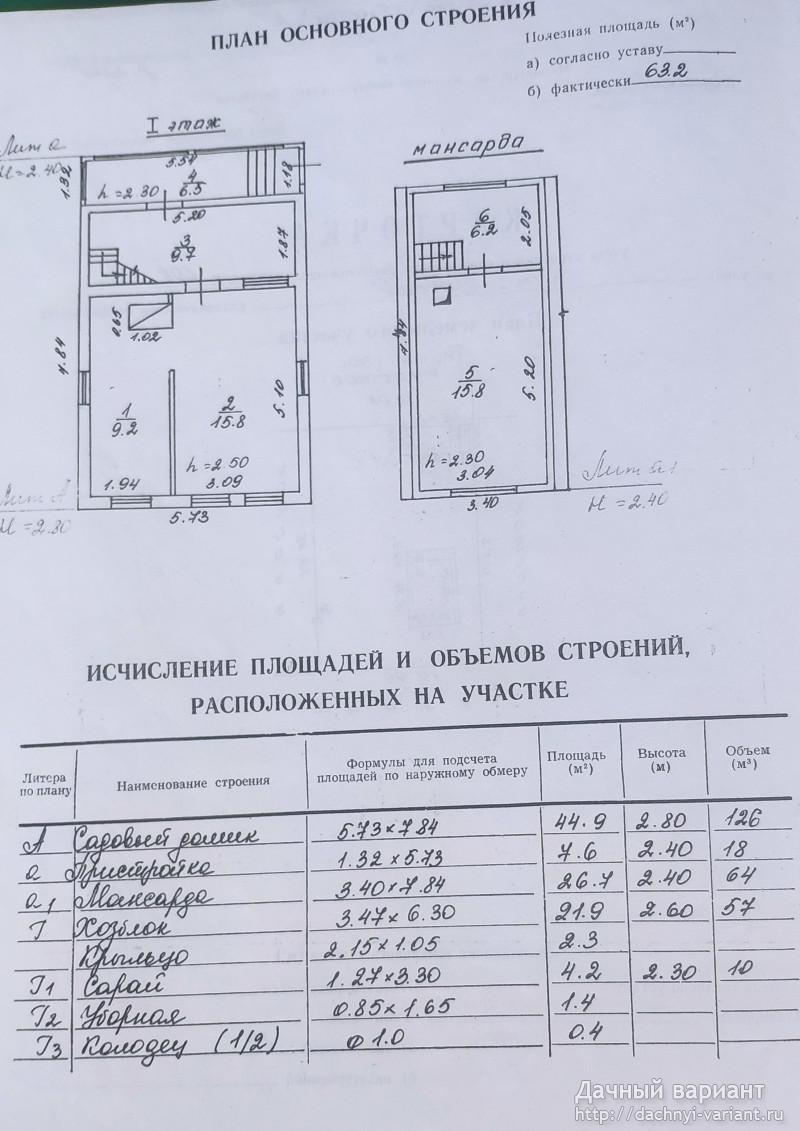 ПЛАН ОСНОВНОГО СТРОЕНИЯ
Полезная площадь (м²)
а) согласно уставу
б) фактически 63.2
I этаж
мансарда
Лит а
H = 2.40
1.32
5.51
4
6.5
h = 2.30
1.18
5.20
3
9.7
1.87
0.65
1.02
7.84
1
9.2
2
15.8
5.10
h = 2.50
1.94
3.09
5.73
Лит А
H = 2.80
6
6.2
2.05
7.84
5
15.8
5.20
h = 2.30
3.04
3.40
Лит а1
H = 2.40
ИСЧИСЛЕНИЕ ПЛОЩАДЕЙ И ОБЪЕМОВ СТРОЕНИЙ,
РАСПОЛОЖЕННЫХ НА УЧАСТКЕ
Литера по плану Наименование строения Формулы для подсчета площадей по наружному обмеру Площадь (м²) Высота (м) Объем (м³)
А Садовый домик 5.73×7.84 44.9 2.80 126
а Пристройка 1.32×5.73 7.6 2.40 18
а1 Мансарда 3.40×7.84 26.7 2.40 64
Г Хозблок 3.47×6.30 21.9 2.60 57
Крыльцо 2.15×1.05 2.3
Г1 Сарай 1.27×3.30 4.2 2.30 10
Г2 Уборная 0.85×1.65 1.4
Г3 Колодец (1/2) ф1.0 0.4
Дачный вариант
http://dachnyi-variant.ru